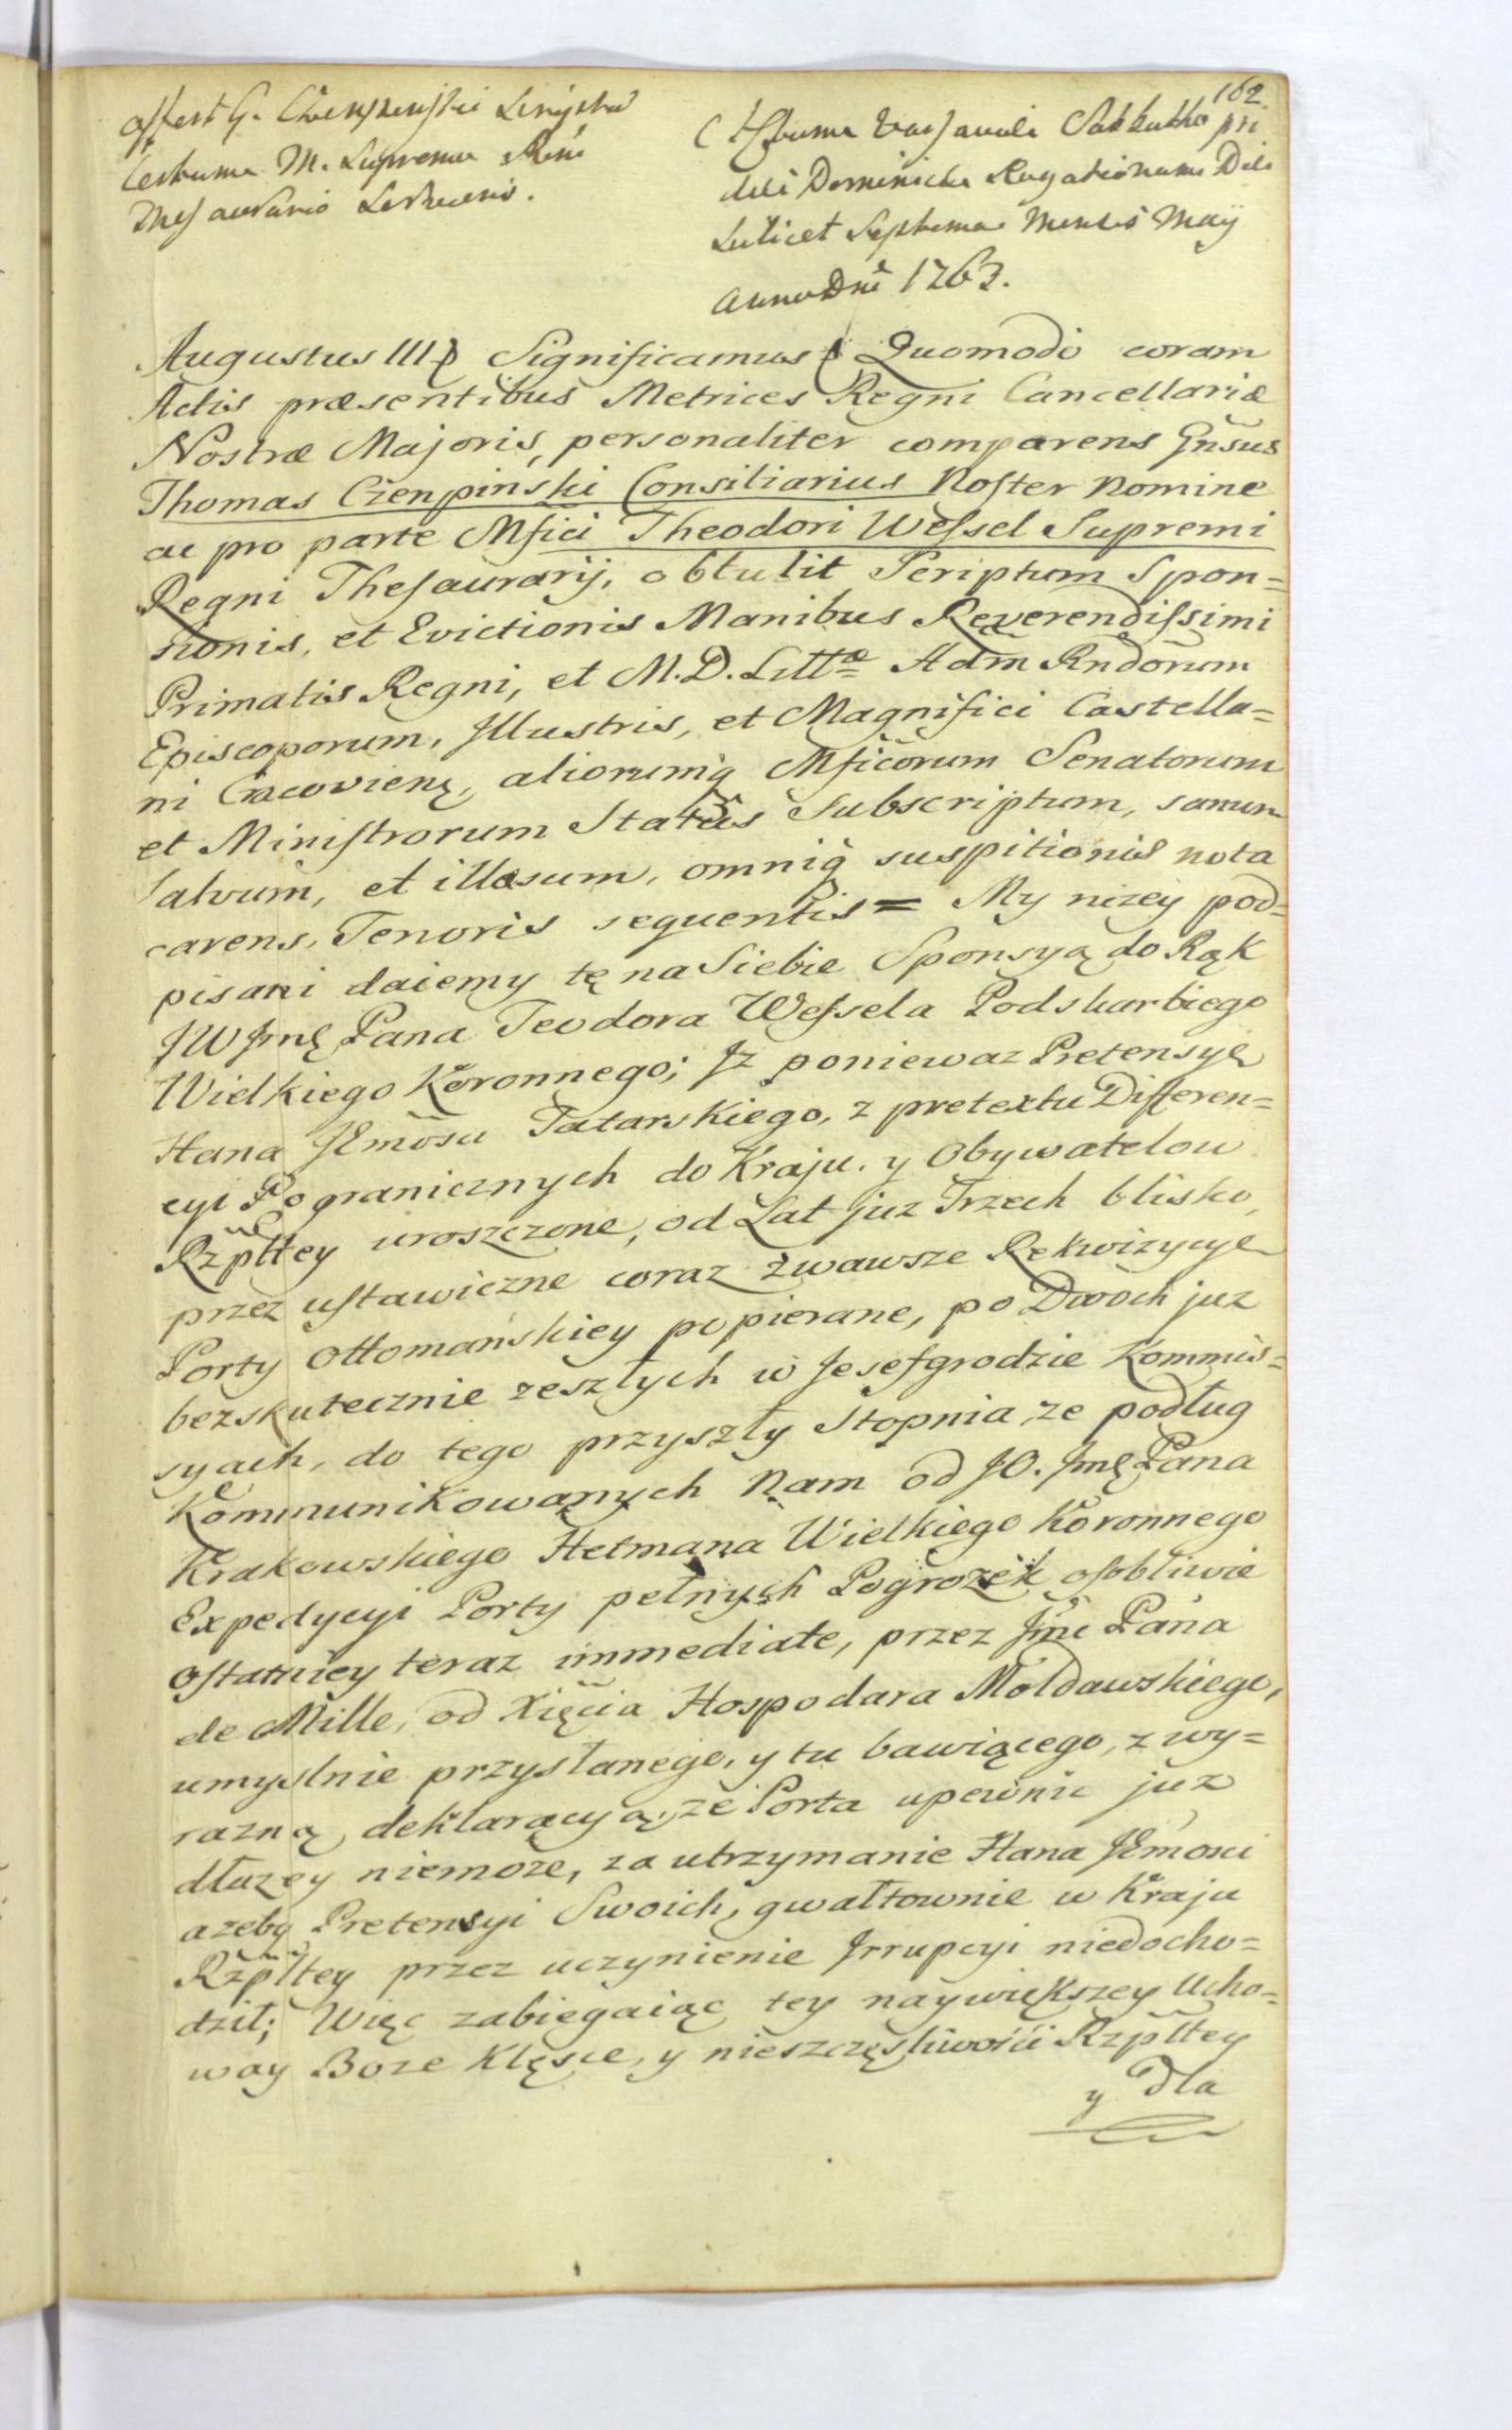 162.
offert G. Czenpinski Scriptum
certum M. Supremo Regni
Thesaurario Serviens.
Actum Varsaviae Sabbatho pri
die Dominicae Rogationum Die
Scilicet Septima Mensis Maÿ
Anno Dni 1763.
Augustus III Significamus Quomodo coram
Actis præsentibus Metrices Regni Cancellariæ
Nostræ Majoris, personaliter comparens Gñsus
Thomas Czenpinski Consiliarius Noster Nomine
ac pro parte Mfici Theodori Wessel Supremi
Regni Thesaurarij, obtulit Scriptum Spon=
sionis, et Evictionis Manibus Reverendissimi
Primatis Regni, et M. D. Littæ Adm̃ Rndõrum
Episcoporum, Jllustris, et Magnifici Castella=
ni Cracovienę, aliorumq̀ Mficõrum Senatorum
et Ministrorum Statûs Subscriptum, sanum
salvum, et illæsum, omniq̀ suspitionis nota
carens, Tenoris sequentis = My nizey pod=
pisani daiemy tę na Siebie Sponsyą do Rąk
JW Jmę Pana Teodora Wessela Podskarbiego
Wielkiego Koronnego; Jz poniewaz Pretensye
Hana JEmõsci Tatarskiego, z pretextu Differen=
cyi Pogranicznych do Kraju. y Obywatelow
Rzpltey uroszczone, od Lat juz Trzech blisko,
przez ustawiczne coraz zwawsze Rekwizycye
Porty Ottomańskiey popierane, po Dwoch juz
bezskutecznie zeszłych w Jesefgrodzie Kommis=
syach, do tego przyszły Stopnia, ze podług
Kommunikowanych Nam od JO. Jmę Pana
Krakowskiego Hetmana Wielkiego Koronnego
Expedycyi Porty pełnych Pogrozek osobliwie
ostatniey teraz immediate, przez Jmc Pana
de Mille, od Xięcia Hospodara Mołdawskiego,
umyslnie przysłanego, y tu bawiącego, z wy=
razną deklaracyą, ze Porta upewnic juz
dłuzey niemoze, za utrzymanie Hana JEmosci
azeby Pretensyi Swoich, gwałtownie w Kraju
Rzpltey przez uczynienie Jrrupcyi niedocho=
dził; Więc zabiegaiąc tey naywiększey Ucho=
way Boze Klęsce, y nieszczęsliwości Rzpltey
y dla